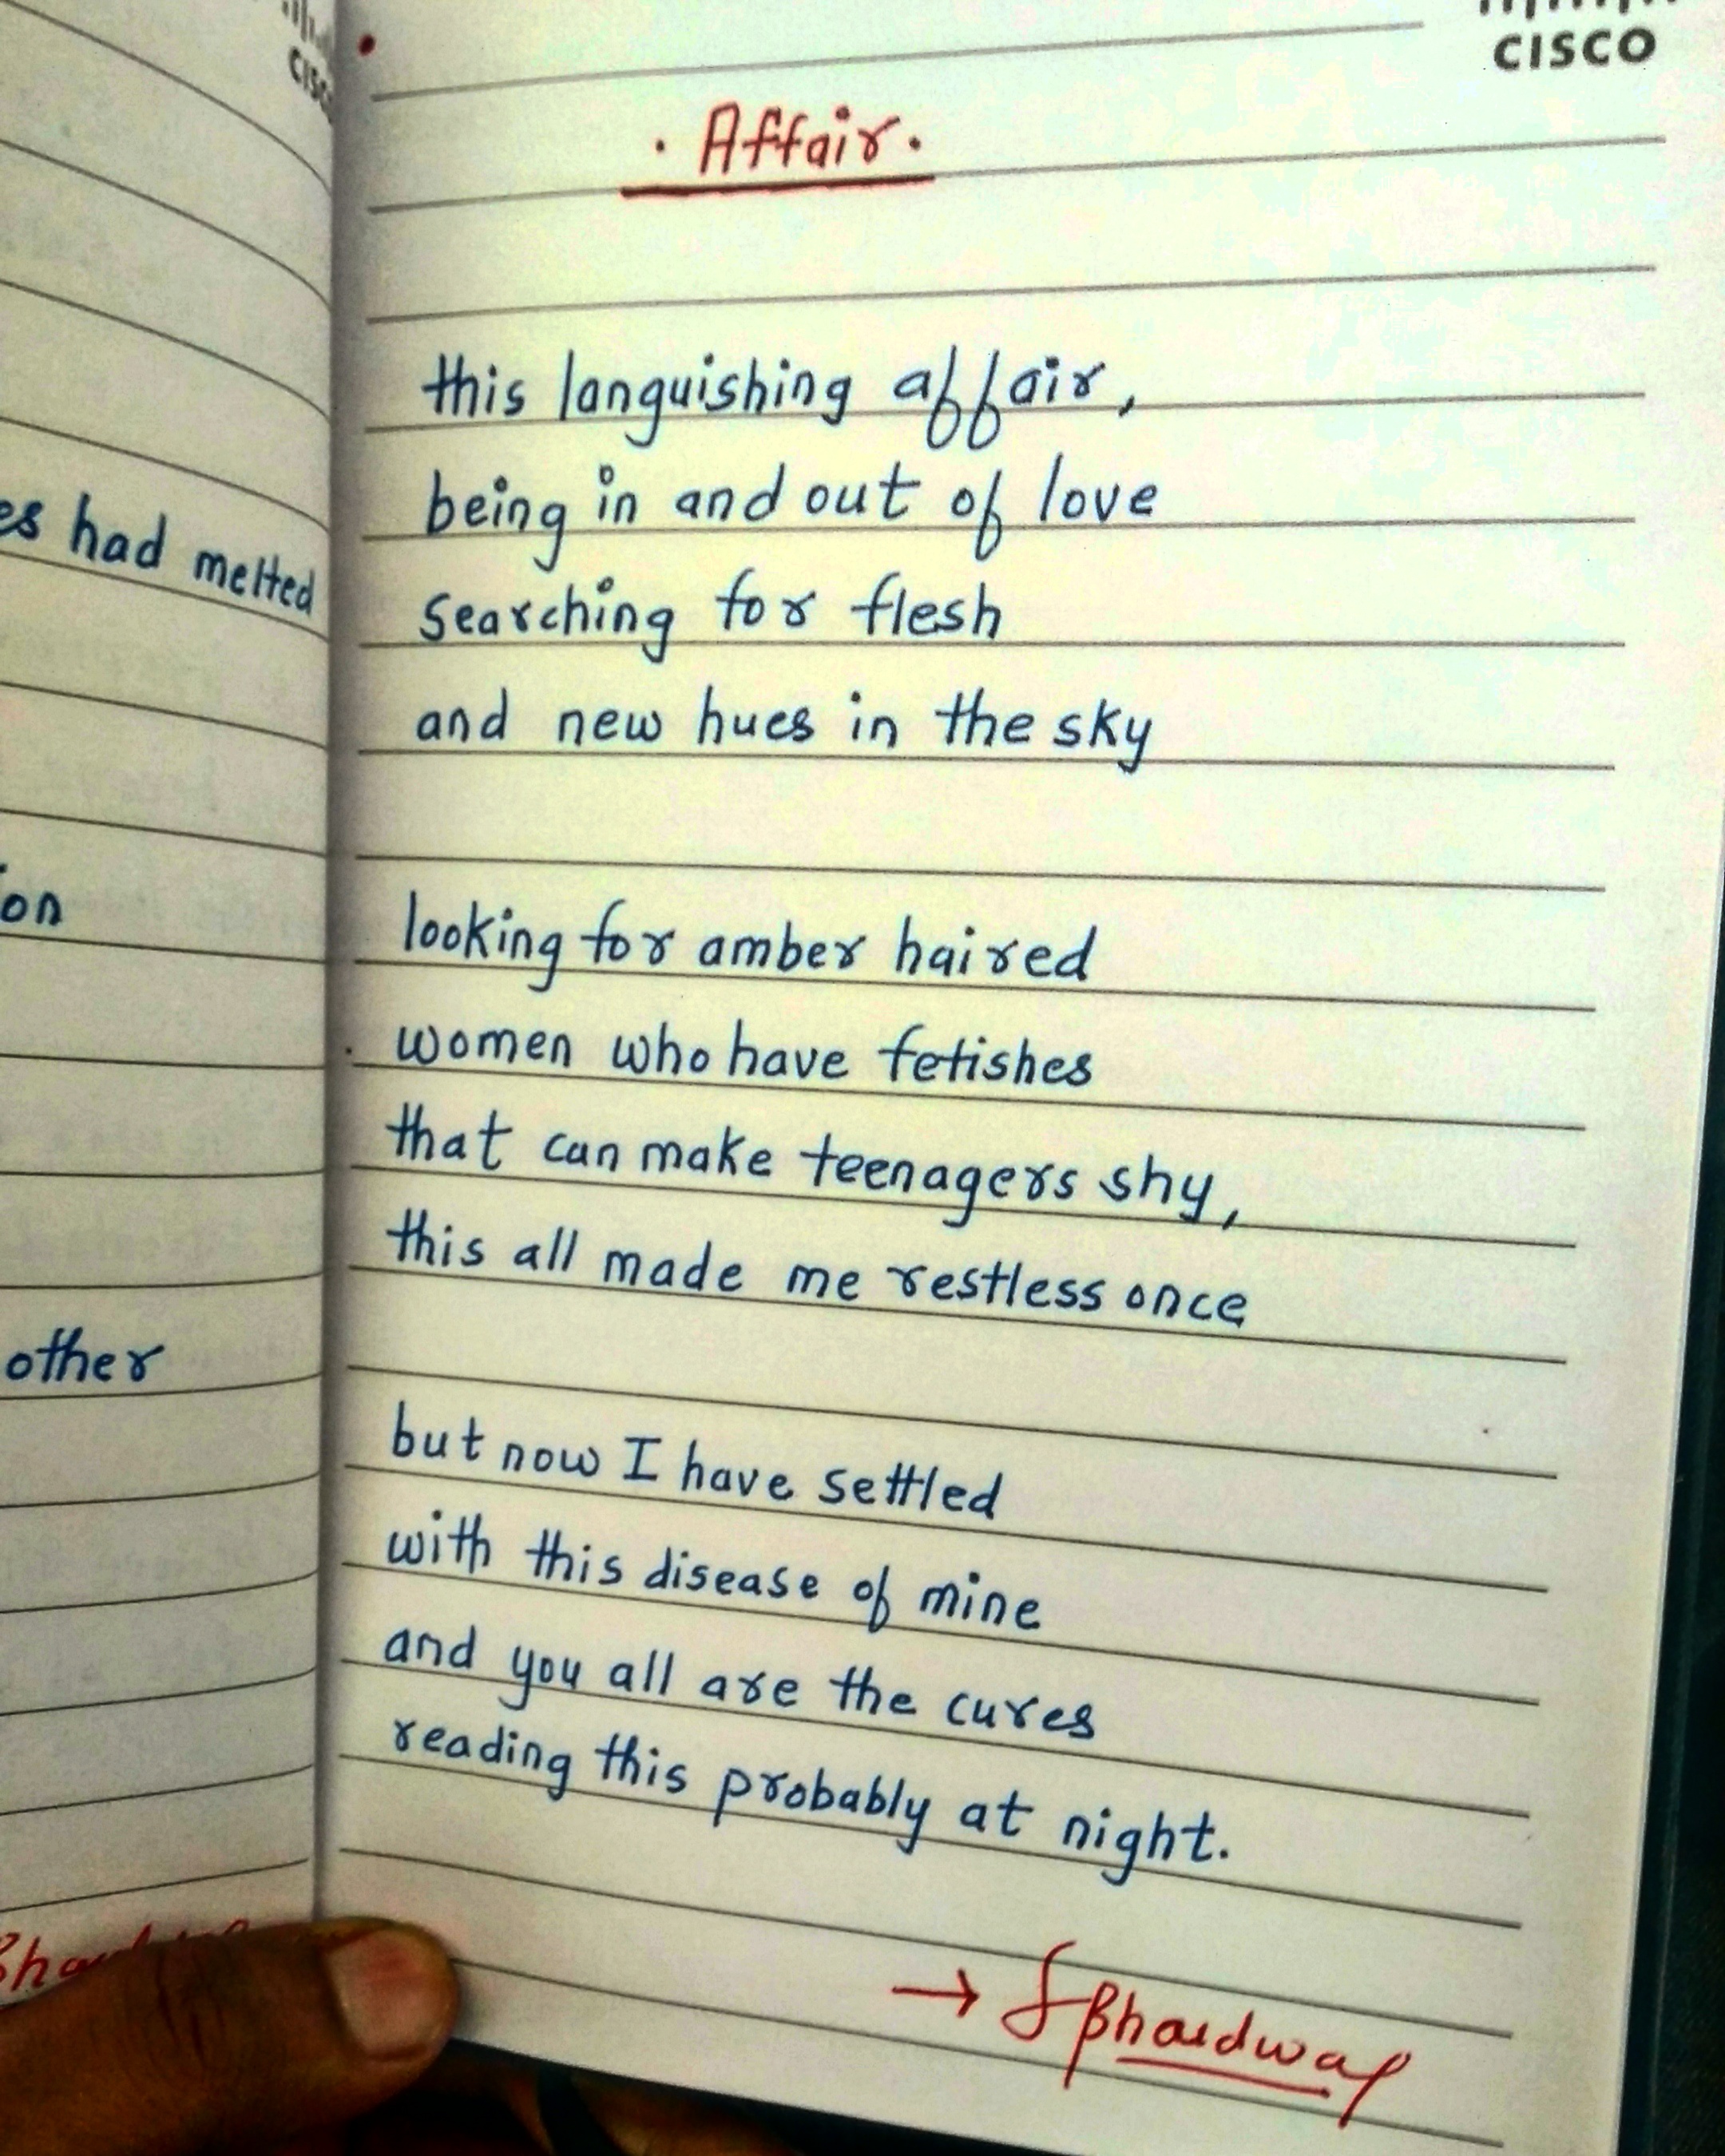 CISCO
· Affair ·
this languishing affair,
being in and out of love
searching for flesh
and new hues in the sky
looking for amber haired
women who have fetishes
that can make teenagers shy,
this all made me restless once
but now I have settled
with this disease of mine
and you all are the cures
reading this probably at night.
→ SBhardwaj
had melted
other